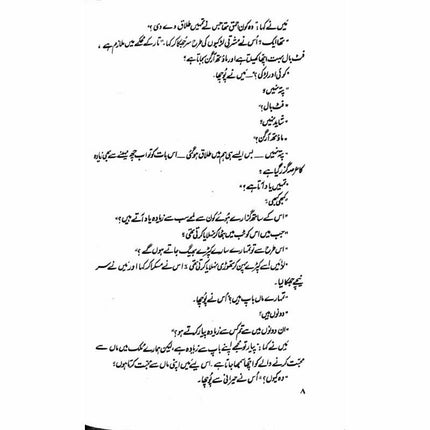 میں نے کہا: وہ کون احمق تھا جس نے تمہیں طلاق دے دی؟"
"تھا ایک، اُس نے مشرقی لڑکیوں کی طرح سر جھکا کر کہا۔ "تار کے محکمے میں ملازم ہے،
فٹ بال بہت اچھا کھیلتا ہے اور ماؤتھ آرگن بجاتا ہے؟
"کوئی اور لڑکی؟"۔ میں نے پوچھا۔
"پتہ نہیں؟
"فٹ بال؟"
"شاید نہیں؟
"ماؤتھ آرگن؟"
"پتہ نہیں — بس ایسے ہی ہم میں طلاق ہوگئی — اس بات کو تو اب چھ مہینے سے بھی زیادہ
کا عرصہ گزر گیا ہے؟
"تمہیں یاد آتا ہے؟"
"کبھی کبھی؟
"اس کے ساتھ گزارے ہوئے کون سے لمحے سب سے زیادہ یاد آتے ہیں؟"
"جب میں اس کو ٹب میں بٹھا کر نہلایا کرتی تھی؟
"اس طرح سے تو تمہارے سارے کپڑے بھیگ جاتے ہوں گے؟"
کپڑے پہن کر تھوڑی نہلایا کرتی تھی؟ اُس نے مسکرا کر کہا اور میں نے سر
نیچے جھکا لیا۔
"تمہارے ماں باپ ہیں؟ اُس نے پوچھا۔
"دونوں ہیں؟
"ان دونوں میں سے تم کس سے زیادہ پیار کرتے ہو؟"
میں نے کہا: "پیار تو مجھے اپنے باپ سے زیادہ ہے، لیکن ہمارے ملک میں ماں سے
محبت کرنے والے کو اچھا سمجھا جاتا ہے۔ اس لئے میں اپنی ماں سے محبت کرتا ہوں؟
"وہ کیوں؟" اُس نے حیرانی سے پوچھا۔
۸